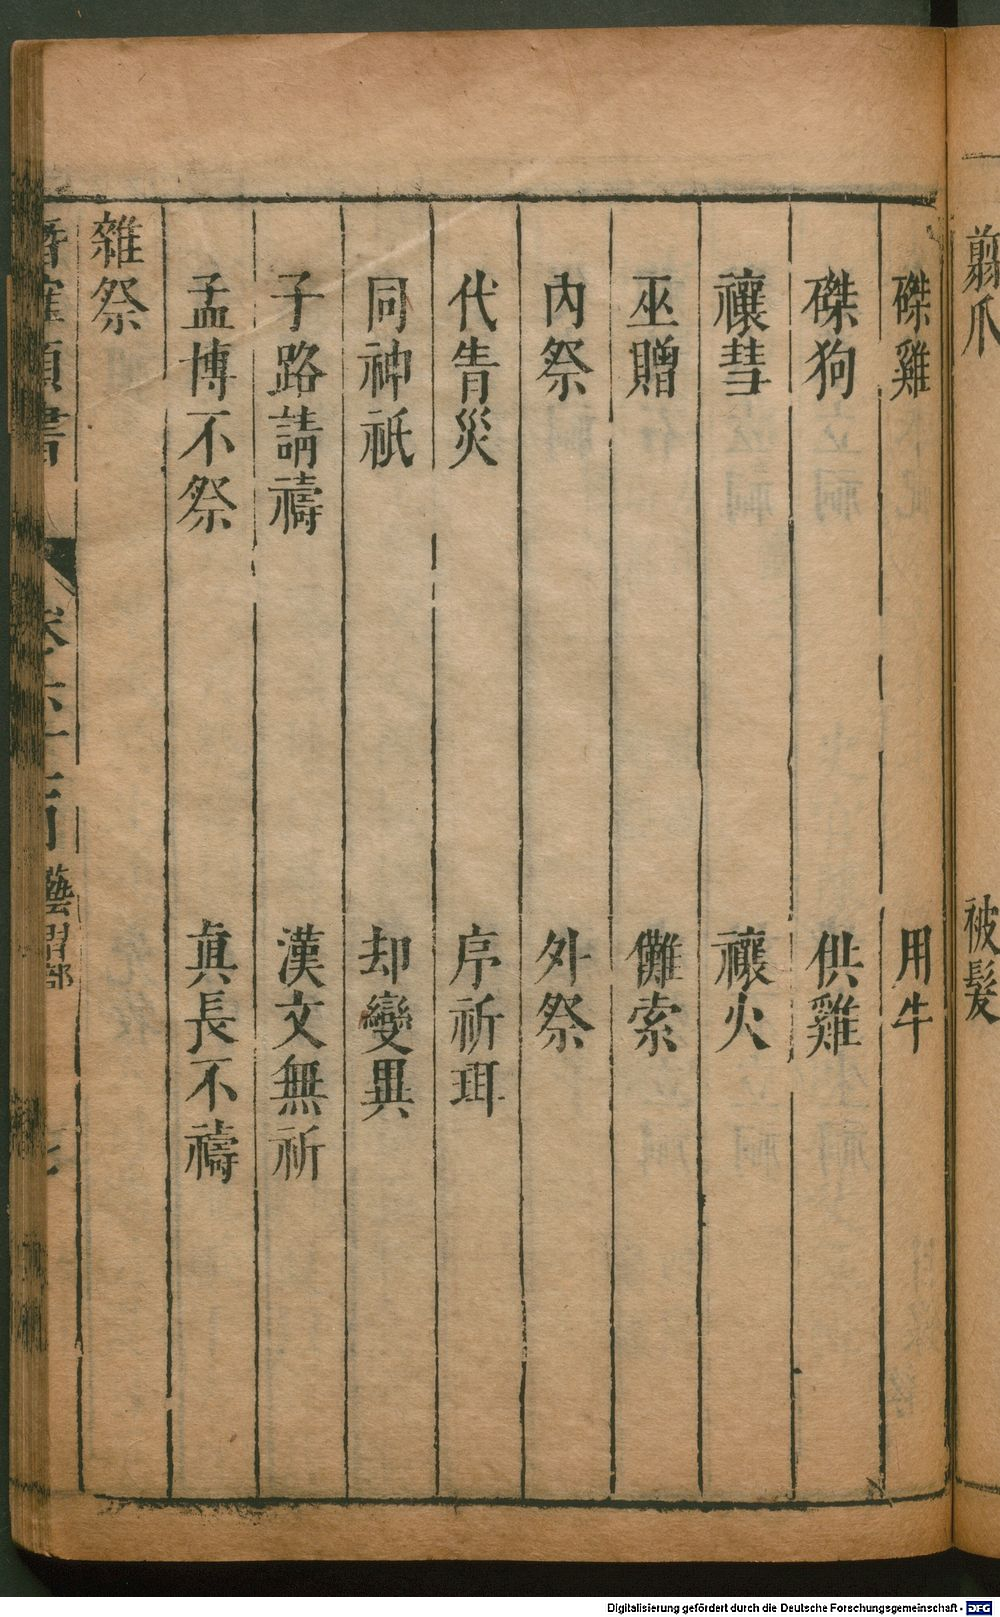 翦爪 被髮
磔雞 用牛
磔狗 供雞
禳彗 禳火
巫贈 儺索
內祭 外祭
代眚災 序祈珥
同神祇 却變異
子路請禱 漢文無祈
孟博不祭 真長不禱
雜祭
類書 卷六十 藝習部
Digitalisierung gefördert durch die Deutsche Forschungsgemeinschaft - DFG